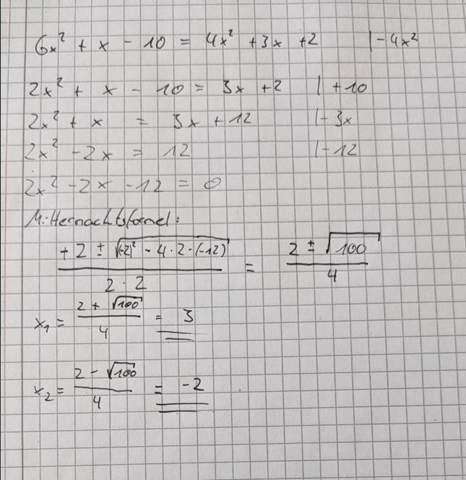 6x² + x - 10 = 4x² + 3x + 2 |-4x²
2x² + x - 10 = 3x + 2 |+10
2x² + x = 3x + 12 |-3x
2x² - 2x = 12 |-12
2x² - 2x - 12 = 0
Mitternachtsformel:
(+2 ± √((-2)² - 4·2·(-12))) / (2·2) = (2 ± √100) / 4
x₁ = (2 + √100) / 4 = 3
x₂ = (2 - √100) / 4 = -2